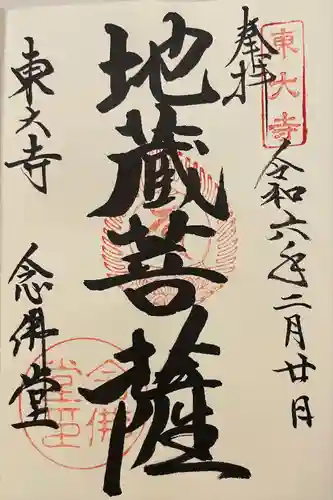 奉拝
東大寺
令和六年二月廿日
地蔵菩薩
東大寺
念佛堂
念佛堂印